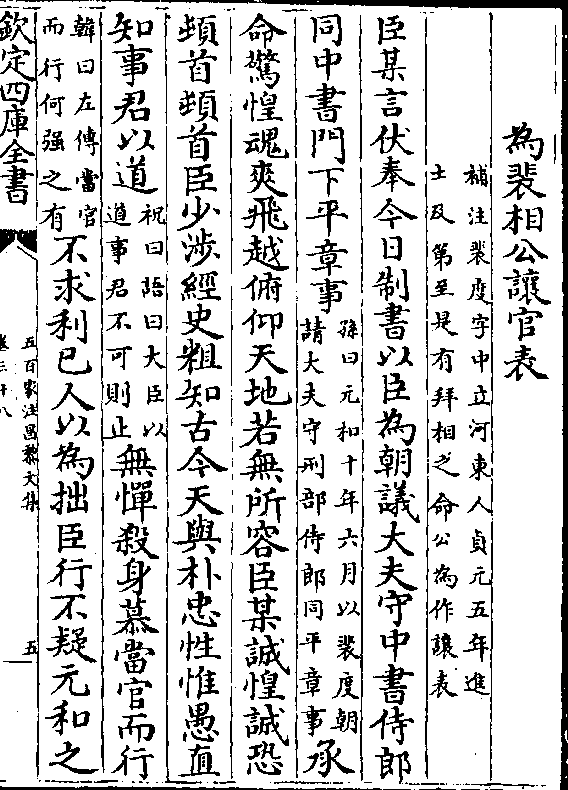 為裴相公讓官表
補注裴度字中立河東人貞元五年進
士及第至是有拜相之命公為作讓表
臣某言伏奉今日制書以臣為朝議大夫守中書侍郎
同中書門下平章事
孫曰元和十年六月以裴度朝
請大夫守刑部侍郎同平章事
承
命驚惶魂爽飛越俯仰天地若無所容臣某誠惶誠恐
頓首頓首臣少涉經史粗知古今天與朴忠性惟愚直
知事君以道
祝曰語曰大臣以
道事君不可則止
無憚殺身慕當官而行
韓曰左傳當官
而行何强之有
不求利已人以為拙臣行不疑元和之
欽定四庫全書
五百家注昌黎文集
卷三十八
五